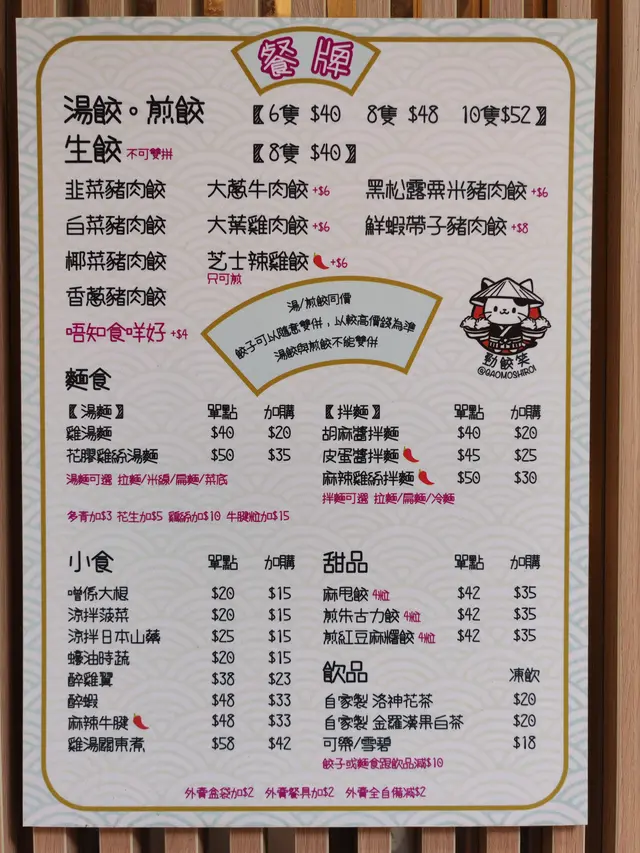 餐牌
湯餃。煎餃 〖6隻 $40 8隻 $48 10隻$52〗
生餃 不可雙拼 〖8隻 $40〗
韭菜豬肉餃 大蔥牛肉餃 +$6 黑松露粟米豬肉餃 +$6
白菜豬肉餃 大葉雞肉餃 +$6 鮮蝦帶子豬肉餃 +$8
椰菜豬肉餃 芝士辣雞餃 +$6
只可煎
香蔥豬肉餃
唔知食咩好 +$4
湯/煎餃同價
餃子可以隨意雙併，以較高價錢為準
湯餃與煎餃不能雙併
勁餃笑
@GAOMOSHIROI
麵食
〖湯麵〗 單點 加購
雞湯麵 $40 $20
花膠雞絲湯麵 $50 $35
湯麵可選 拉麵/米線/扁麵/菜底
〖拌麵〗 單點 加購
胡麻醬拌麵 $40 $20
皮蛋醬拌麵 $45 $25
麻辣雞絲拌麵 $50 $30
拌麵可選 拉麵/扁麵/冷麵
多青加$3 花生加$5 雞絲加$10 牛腱粒加$15
小食 單點 加購
噌係大根 $20 $15
涼拌菠菜 $20 $15
涼拌日本山藥 $25 $15
蠔油時蔬 $20 $15
醉雞翼 $38 $23
醉蝦 $48 $33
麻辣牛腱 $48 $33
雞湯關東煮 $58 $42
甜品 單點 加購
麻甩餃 4粒 $42 $35
煎朱古力餃 4粒 $42 $35
煎紅豆麻糬餃 4粒 $42 $35
飲品 凍飲
自家製 洛神花茶 $20
自家製 金羅漢果白茶 $20
可樂/雪碧 $18
餃子或麵食跟飲品減$10
外賣盒袋加$2 外賣餐具加$2 外賣全自備減$2